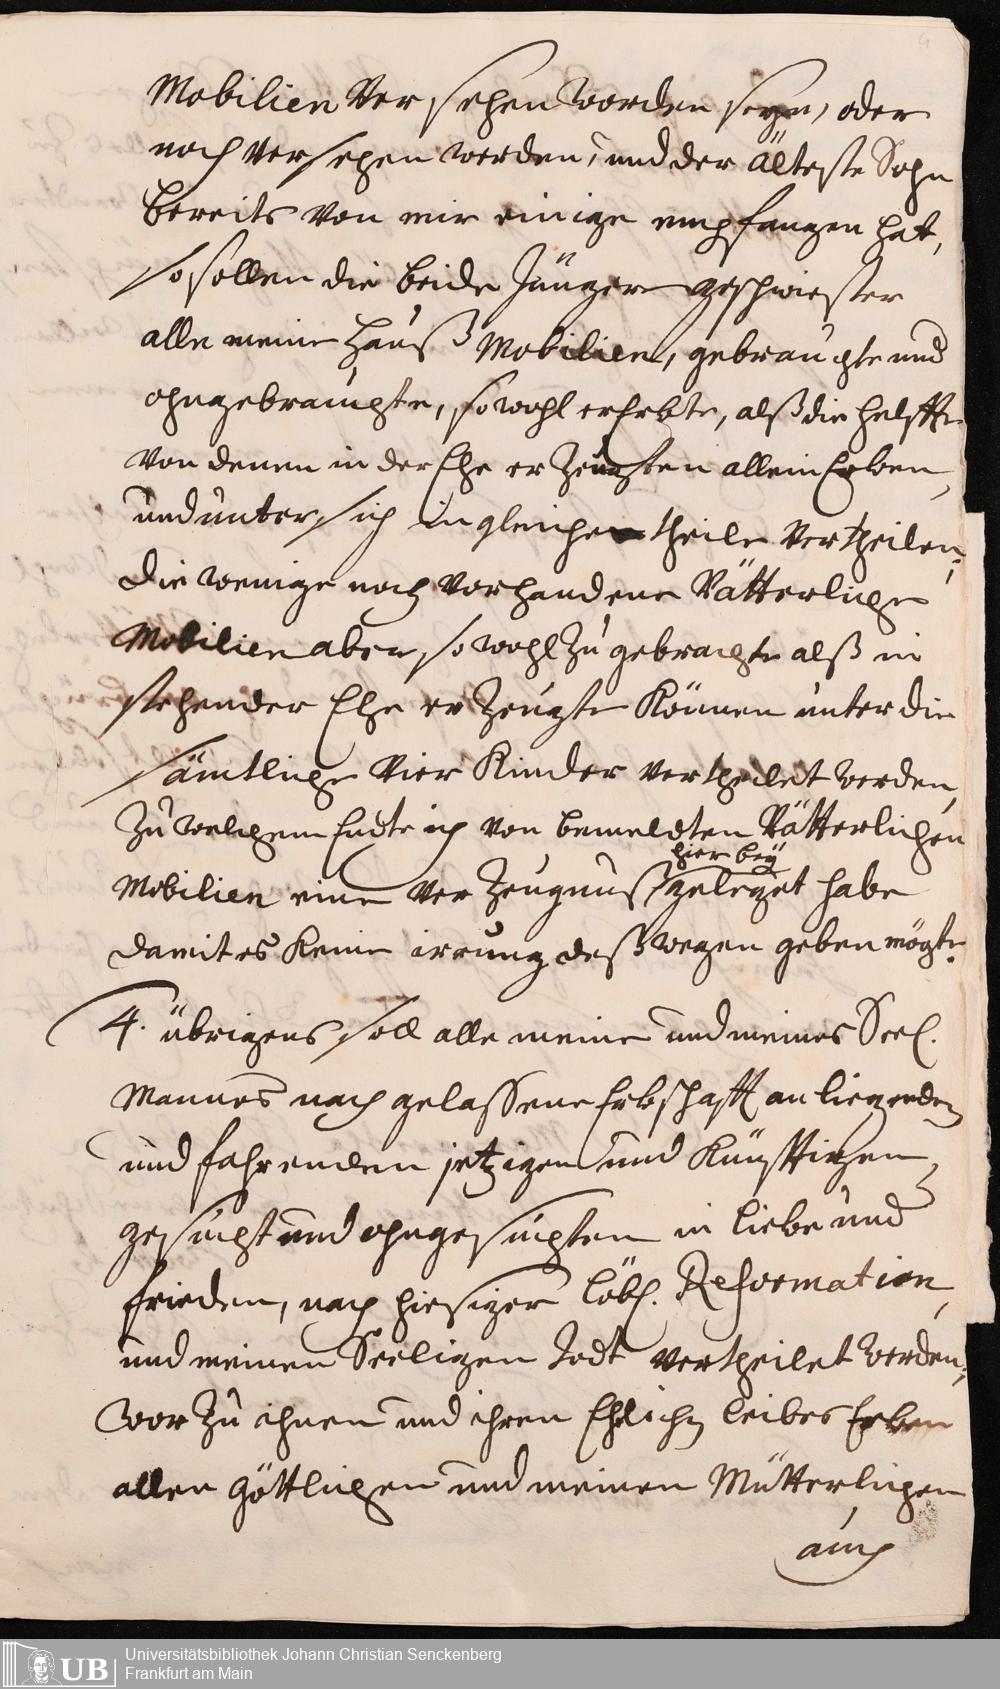 Mobilien Versehen worden seyn, oder
noch Versehen werden, und der älteste Sohn
bereits Von mir einige empfangen hat,
so sollen die beide Jüngere geschwiester
alle meine Hauß Mobilien, gebrauchte und
ohngebrauchte, sowohl erErbte, alß die helffte
Von denen in der Ehe erZeugten allein Erben,
und unter sich in gleiche theile Vertheilen;
die wenige noch Vorhandene Vätterliche
Mobilien aber, sowohl Zugebrachte alß in
stehender Ehe erZeugte Können unter die
sämtliche Vier Kinder Vertheilet werden,
Zu welchem Endte ich Von bemeldten Vätterlichen
hier bey
Mobilien eine VerZeugnuß geleget habe
damit es Keine irrung deßwegen geben mögte.
4. übrigens soll alle meine und meines Seel.
Mannes nach gelassene Erbschafft an liegenden
und fahrenden jetzigen und Künfftigen,
gesucht und ohngesuchten in liebe und
frieden, nach hiesiger löbl. Reformation,
und meinen Seeligen Todt Vertheilet werden;
worZu ihnen und ihren Ehlichen leibes Erben
allen göttlichen und meinen Mütterlichen
auch
Universitätsbibliothek Johann Christian Senckenberg
Frankfurt am Main
UB